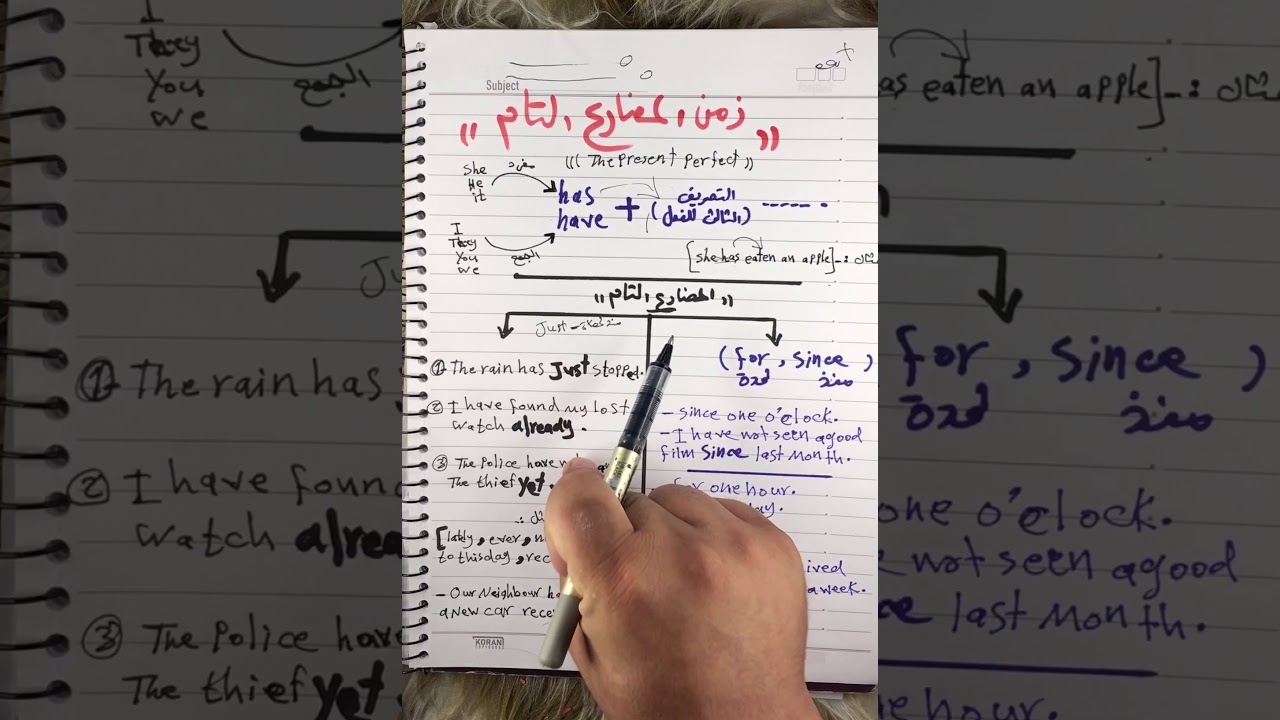 Subject
eat
" زمن المضارع التام "
((( The Present Perfect))
She
He
it
مفرد
has
have
+
التصريف
(الثالث للفعل)
------ .
I
They
You
we
الجمع
[She has eaten an apple] -: مثال
" المضارع التام "
Just - منذ لحظات
① The rain has Just stopped.
② I have found my lost
watch already.
③ The Police have
The thief yet.
[lately, ever,
to this day,
- Our Neighbour
a new car
(for, since)
لمدة منذ
- since one o'clock.
- I have not seen a good
film Since last month.
- for one hour.
a week.
KORAN